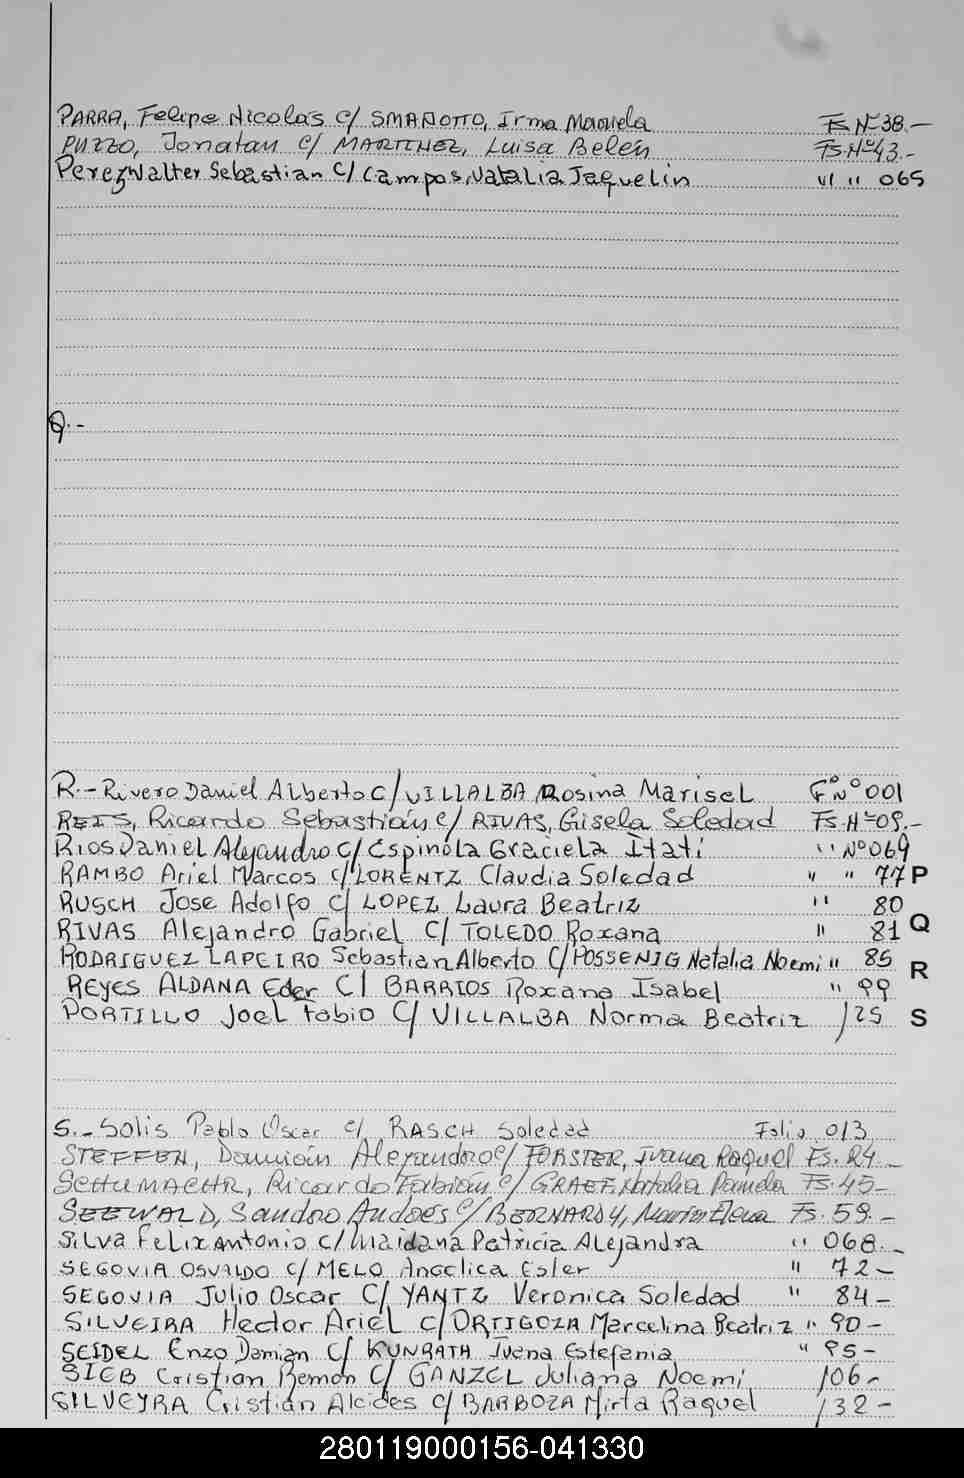 PARRA, Felipe Nicolás c/ SMANOTTO, Irma Manuela Fs Nº 38.-
PUZZO, Jonatan c/ MARTINEZ, Luisa Belén Fs. Nº 43.-
Perez Walter Sebastian C/ Campos, Natalia Jaquelin " " 065
Q.-
R.- Rivero Daniel Alberto C/ VILLALBA Rosina Marisel Fº Nº 001
REIS, Ricardo Sebastián c/ RIVAS, Gisela Soledad Fs. Nº 09.-
Rios Daniel Alejandro C/ Espinola Graciela Itatí " Nº 069
RAMBO Ariel Marcos c/ LORENTZ Claudia Soledad " " 77 P
RUSCH Jose Adolfo C/ LOPEZ Laura Beatriz " 80
RIVAS Alejandro Gabriel C/ TOLEDO Roxana " 81 Q
RODRIGUEZ LAPEIRO Sebastian Alberto C/ POSSENIG Natalia Noemi " 85
R
REYES ALDANA Eder C/ BARRIOS Roxana Isabel " 99
PORTILLO Joel Fabio C/ VILLALBA Norma Beatriz 125 S
S.- Solis Pablo Oscar c/ RASCH Soledad Folio 013
STEFFEN, Damián Alejandro c/ FORSTER, Ivana Raquel Fs. 24-
SCHUMACHR, Ricardo Fabián c/ GRAEF, Natalia Pamela Fs. 45-
SEEWALD, Sandro Andrés c/ BERNARDY, María Elena Fs. 59.-
Silva Felix Antonio c/ Maidana Patricia Alejandra " 068.-
SEGOVIA OSVALDO C/ MELO Angelica Ester " 72-
SEGOVIA Julio Oscar C/ YANTZ Veronica Soledad " 84-
SILVEIRA Hector Ariel C/ ORTIGOZA Marcelina Beatriz " 90-
SEIDEL Enzo Damian C/ KUNRATH Ivena Estefania " 95-
SIEB Cristian Remon C/ GANZEL Juliana Noemi 106-
SILVEYRA Cristian Alcides c/ BARBOZA Mirta Raquel 132-
280119000156-041330